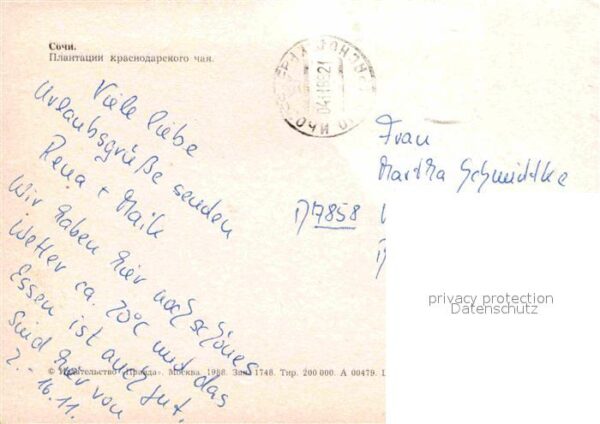 Сочи.
Плантации краснодарского чая.
Viele liebe
Urlaubsgrüße senden
Rena + Maik
Wir haben hier noch schönes
Wetter ca. 20°C und das
Essen ist auch gut.
Sind hier von
2. - 16.11.
Frau
Martha Schmidtke
D 7858
privacy protection
Datenschutz
© Издательство «Правда». Москва. 1988. Зак. 1748. Тир. 200 000. А 00479.